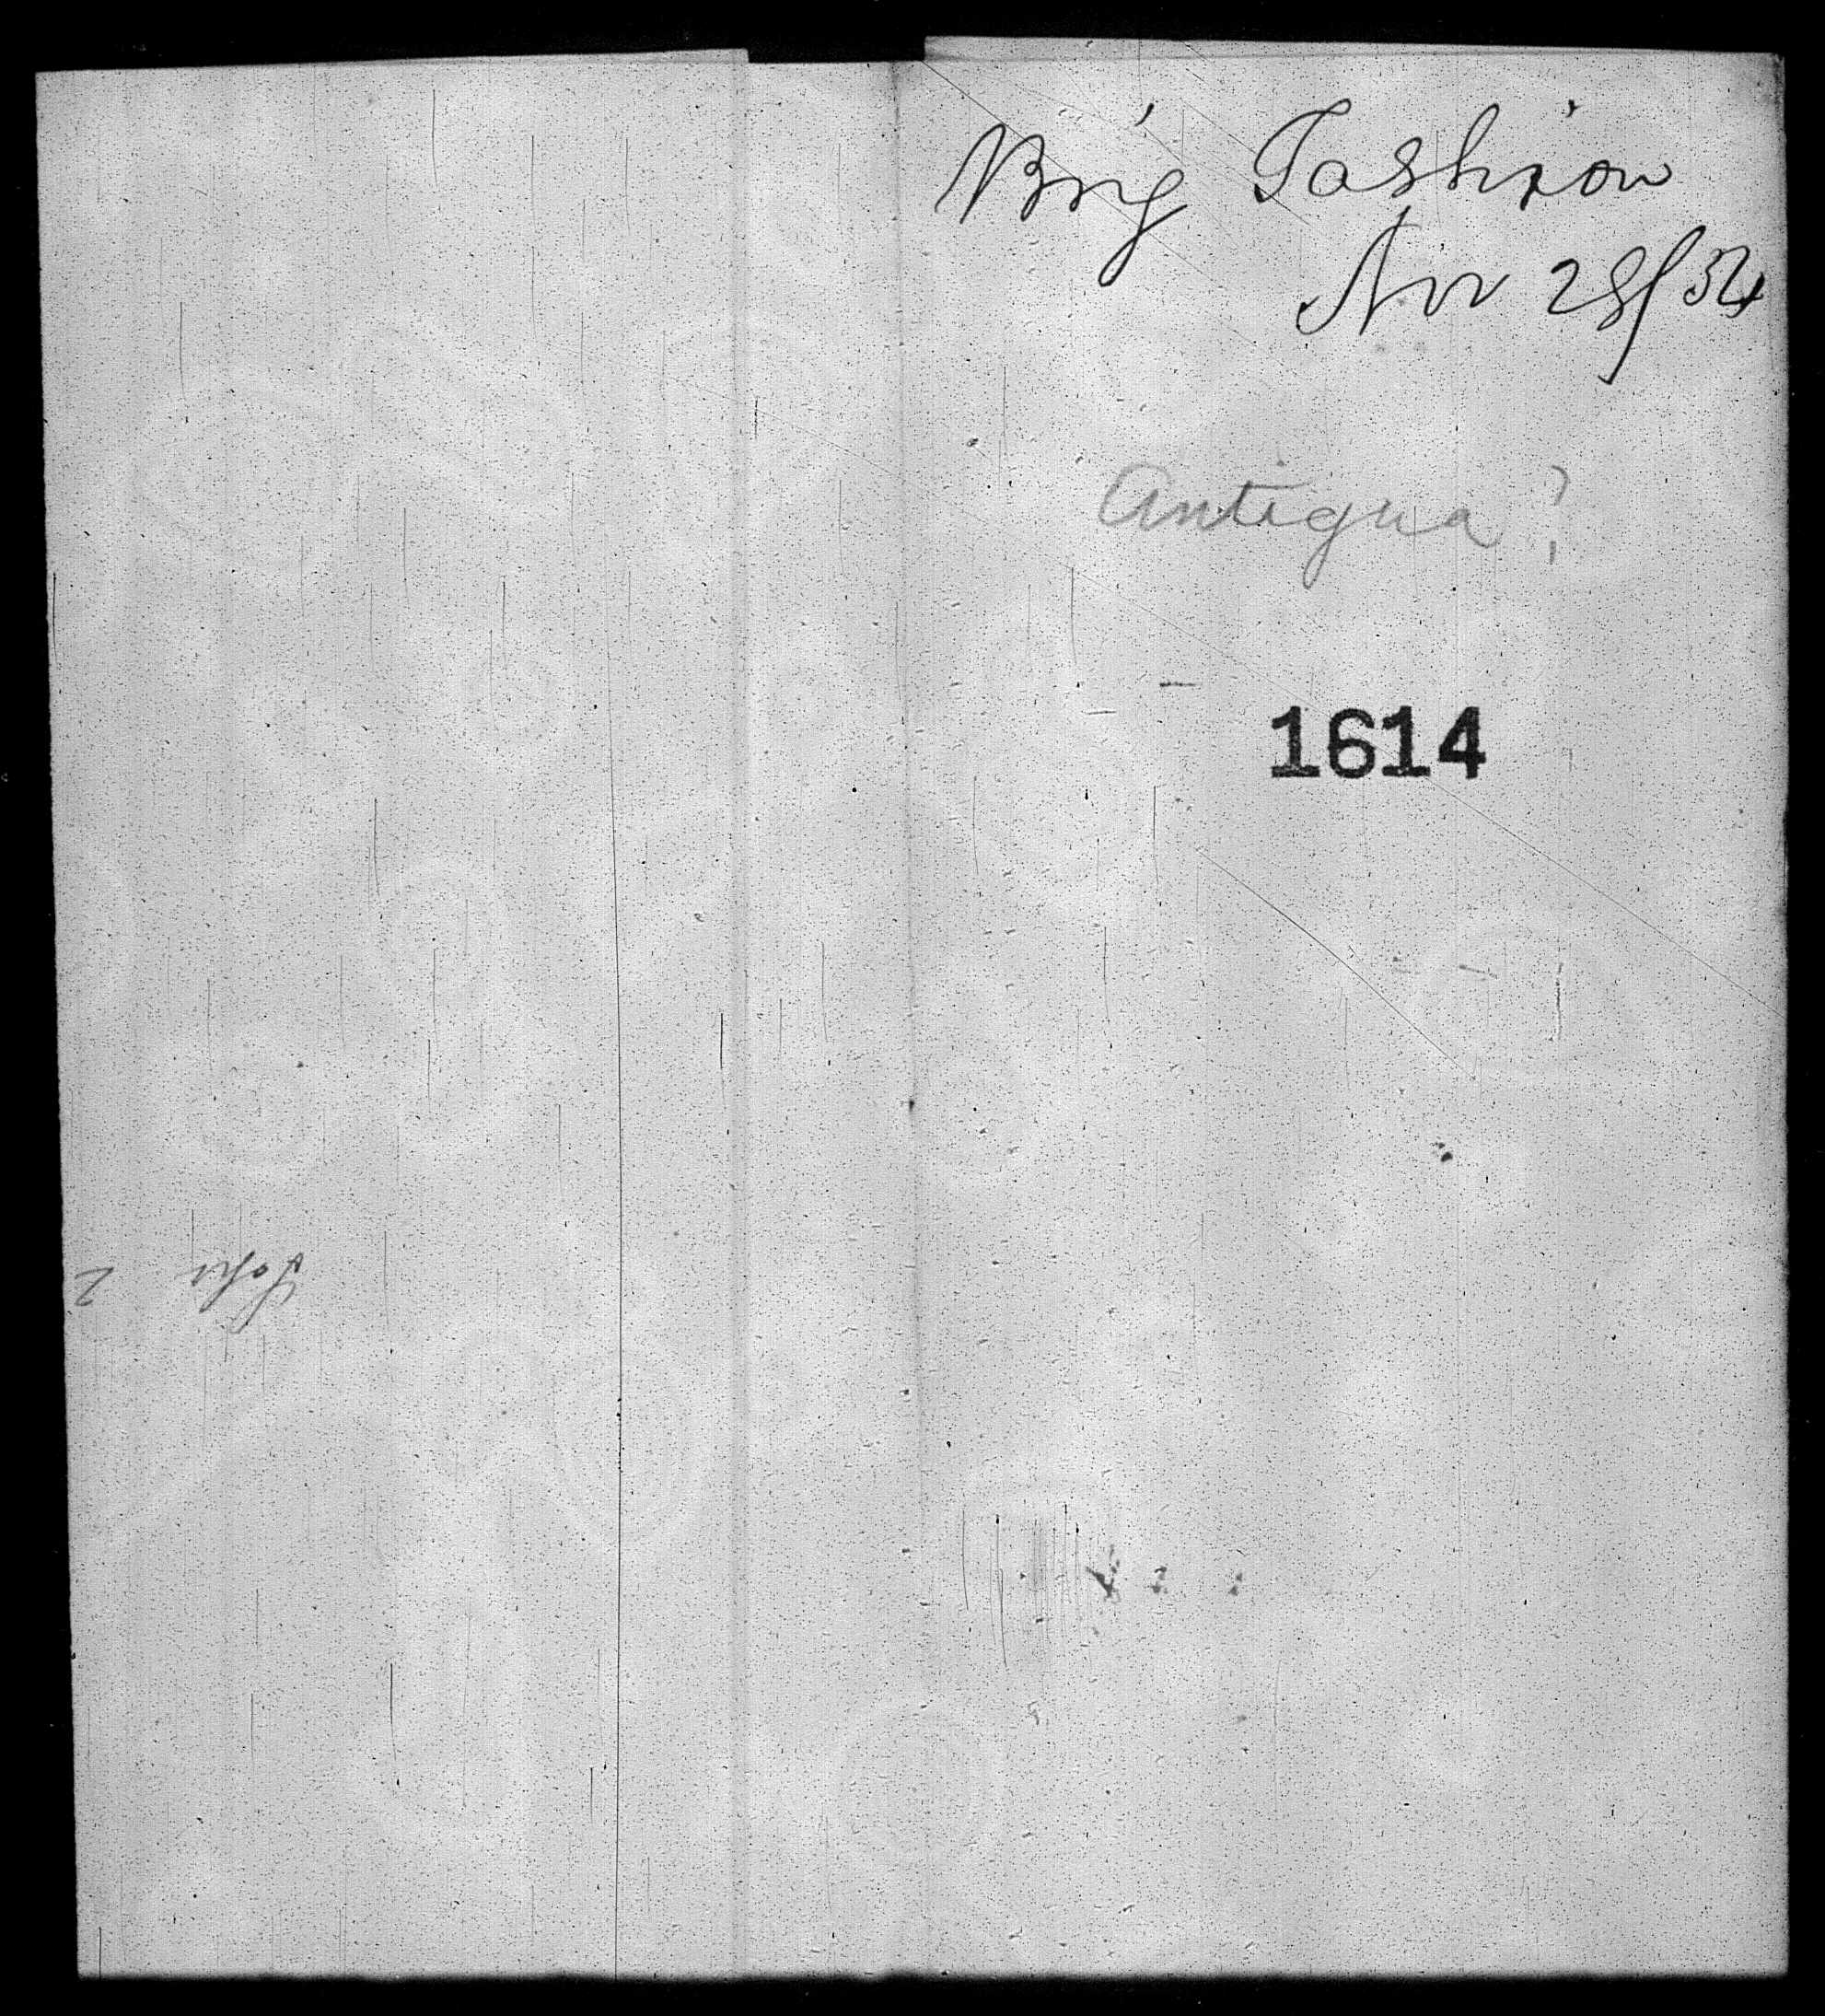 Brig Fashion
Nov 28/54
Antigua?
1614